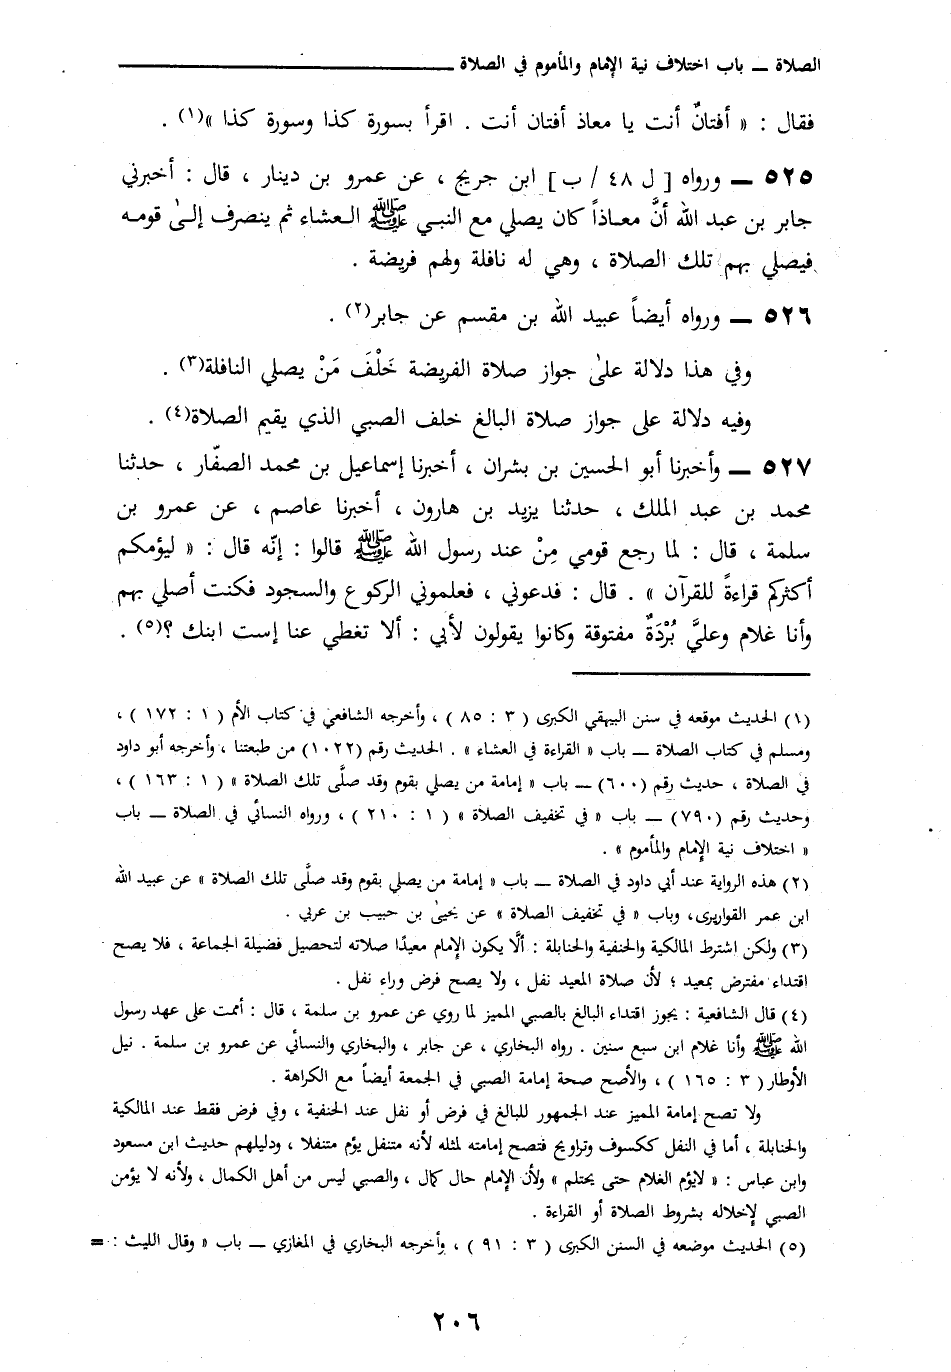 الصلاة ــ باب اختلاف نية الإمام والمأموم في الصلاة
فقال : « أفتانٌ أنت يا معاذ أفتان أنت . اقرأ بسورة كذا وسورة كذا »(١) .
٥٢٥ ــ ورواه [ ل ٤٨ / ب ] ابن جريج ، عن عمرو بن دينار ، قال : أخبرني
جابر بن عبد الله أنَّ معاذاً كان يصلي مع النبي ﷺ العشاء ثم ينصرف إلىٰ قومه
فيصلي بهم تلك الصلاة ، وهي له نافلة ولهم فريضة .
٥٢٦ ــ ورواه أيضاً عبيد الله بن مقسم عن جابر(٢) .
وفي هذا دلالة علىٰ جواز صلاة الفريضة خَلْفَ مَنْ يصلي النافلة(٣) .
وفيه دلالة على جواز صلاة البالغ خلف الصبي الذي يقيم الصلاة(٤) .
٥٢٧ ــ وأخبرنا أبو الحسين بن بشران ، أخبرنا إسماعيل بن محمد الصفّار ، حدثنا
محمد بن عبد الملك ، حدثنا يزيد بن هارون ، أخبرنا عاصم ، عن عمرو بن
سلمة ، قال : لما رجع قومي مِنْ عند رسول الله ﷺ قالوا : إنّه قال : « ليؤمكم
أكثركم قراءةً للقرآن » . قال : فدعوني ، فعلموني الركوع والسجود فكنت أصلي بهم
وأنا غلام وعليَّ بُرْدَةٌ مفتوقة وكانوا يقولون لأبي : ألا تغطي عنا إست ابنك ؟(٥) .
(١) الحديث موقعه في سنن البيهقي الكبرى ( ٣ : ٨٥ ) ، وأخرجه الشافعي في كتاب الأم ( ١ : ١٧٢ ) ،
ومسلم في كتاب الصلاة ــ باب « القراءة في العشاء » . الحديث رقم (١٠٢٢) من طبعتنا ، وأخرجه أبو داود
في الصلاة ، حديث رقم (٦٠٠) ــ باب « إمامة من يصلي بقوم وقد صلَّى تلك الصلاة » ( ١ : ١٦٣ ) ،
وحديث رقم (٧٩٠) ــ باب « في تخفيف الصلاة » ( ١ : ٢١٠ ) ، ورواه النسائي في الصلاة ــ باب
« اختلاف نية الإمام والمأموم » .
(٢) هذه الرواية عند أبي داود في الصلاة ــ باب « إمامة من يصلي بقوم وقد صلَّى تلك الصلاة » عن عبيد الله
ابن عمر القواريرى، وباب « في تخفيف الصلاة » عن يحيىٰ بن حبيب بن عربي .
(٣) ولكن اشترط المالكية والحنفية والحنابلة : ألَّا يكون الإمام معيدًا صلاته لتحصيل فضيلة الجماعة ، فلا يصح
اقتداء مفترض بمعيد ؛ لأن صلاة المعيد نفل ، ولا يصح فرض وراء نفل .
(٤) قال الشافعية : يجوز اقتداء البالغ بالصبي المميز لما روي عن عمرو بن سلمة ، قال : أممت على عهد رسول
الله ﷺ وأنا غلام ابن سبع سنين . رواه البخاري ، عن جابر ، والبخاري والنسائي عن عمرو بن سلمة . نيل
الأوطار ( ٣ : ١٦٥ ) ، والأصح صحة إمامة الصبي في الجمعة أيضاً مع الكراهة .
ولا تصح إمامة المميز عند الجمهور للبالغ في فرض أو نفل عند الحنفية ، وفي فرض فقط عند المالكية
والحنابلة ، أما في النفل ككسوف وتراويح فتصح إمامته لمثله لأنه متنفل يؤم متنفلا ، ودليلهم حديث ابن مسعود
وابن عباس : « لايؤم الغلام حتى يحتلم » ولأن الإمام حال كمال ، والصبي ليس من أهل الكمال ، ولأنه لا يؤمن
الصبي لإخلاله بشروط الصلاة أو القراءة .
(٥) الحديث موضعه في السنن الكبرى ( ٣ : ٩١ ) ، وأخرجه البخاري في المغازي ــ باب « وقال الليث : =
٢٠٦